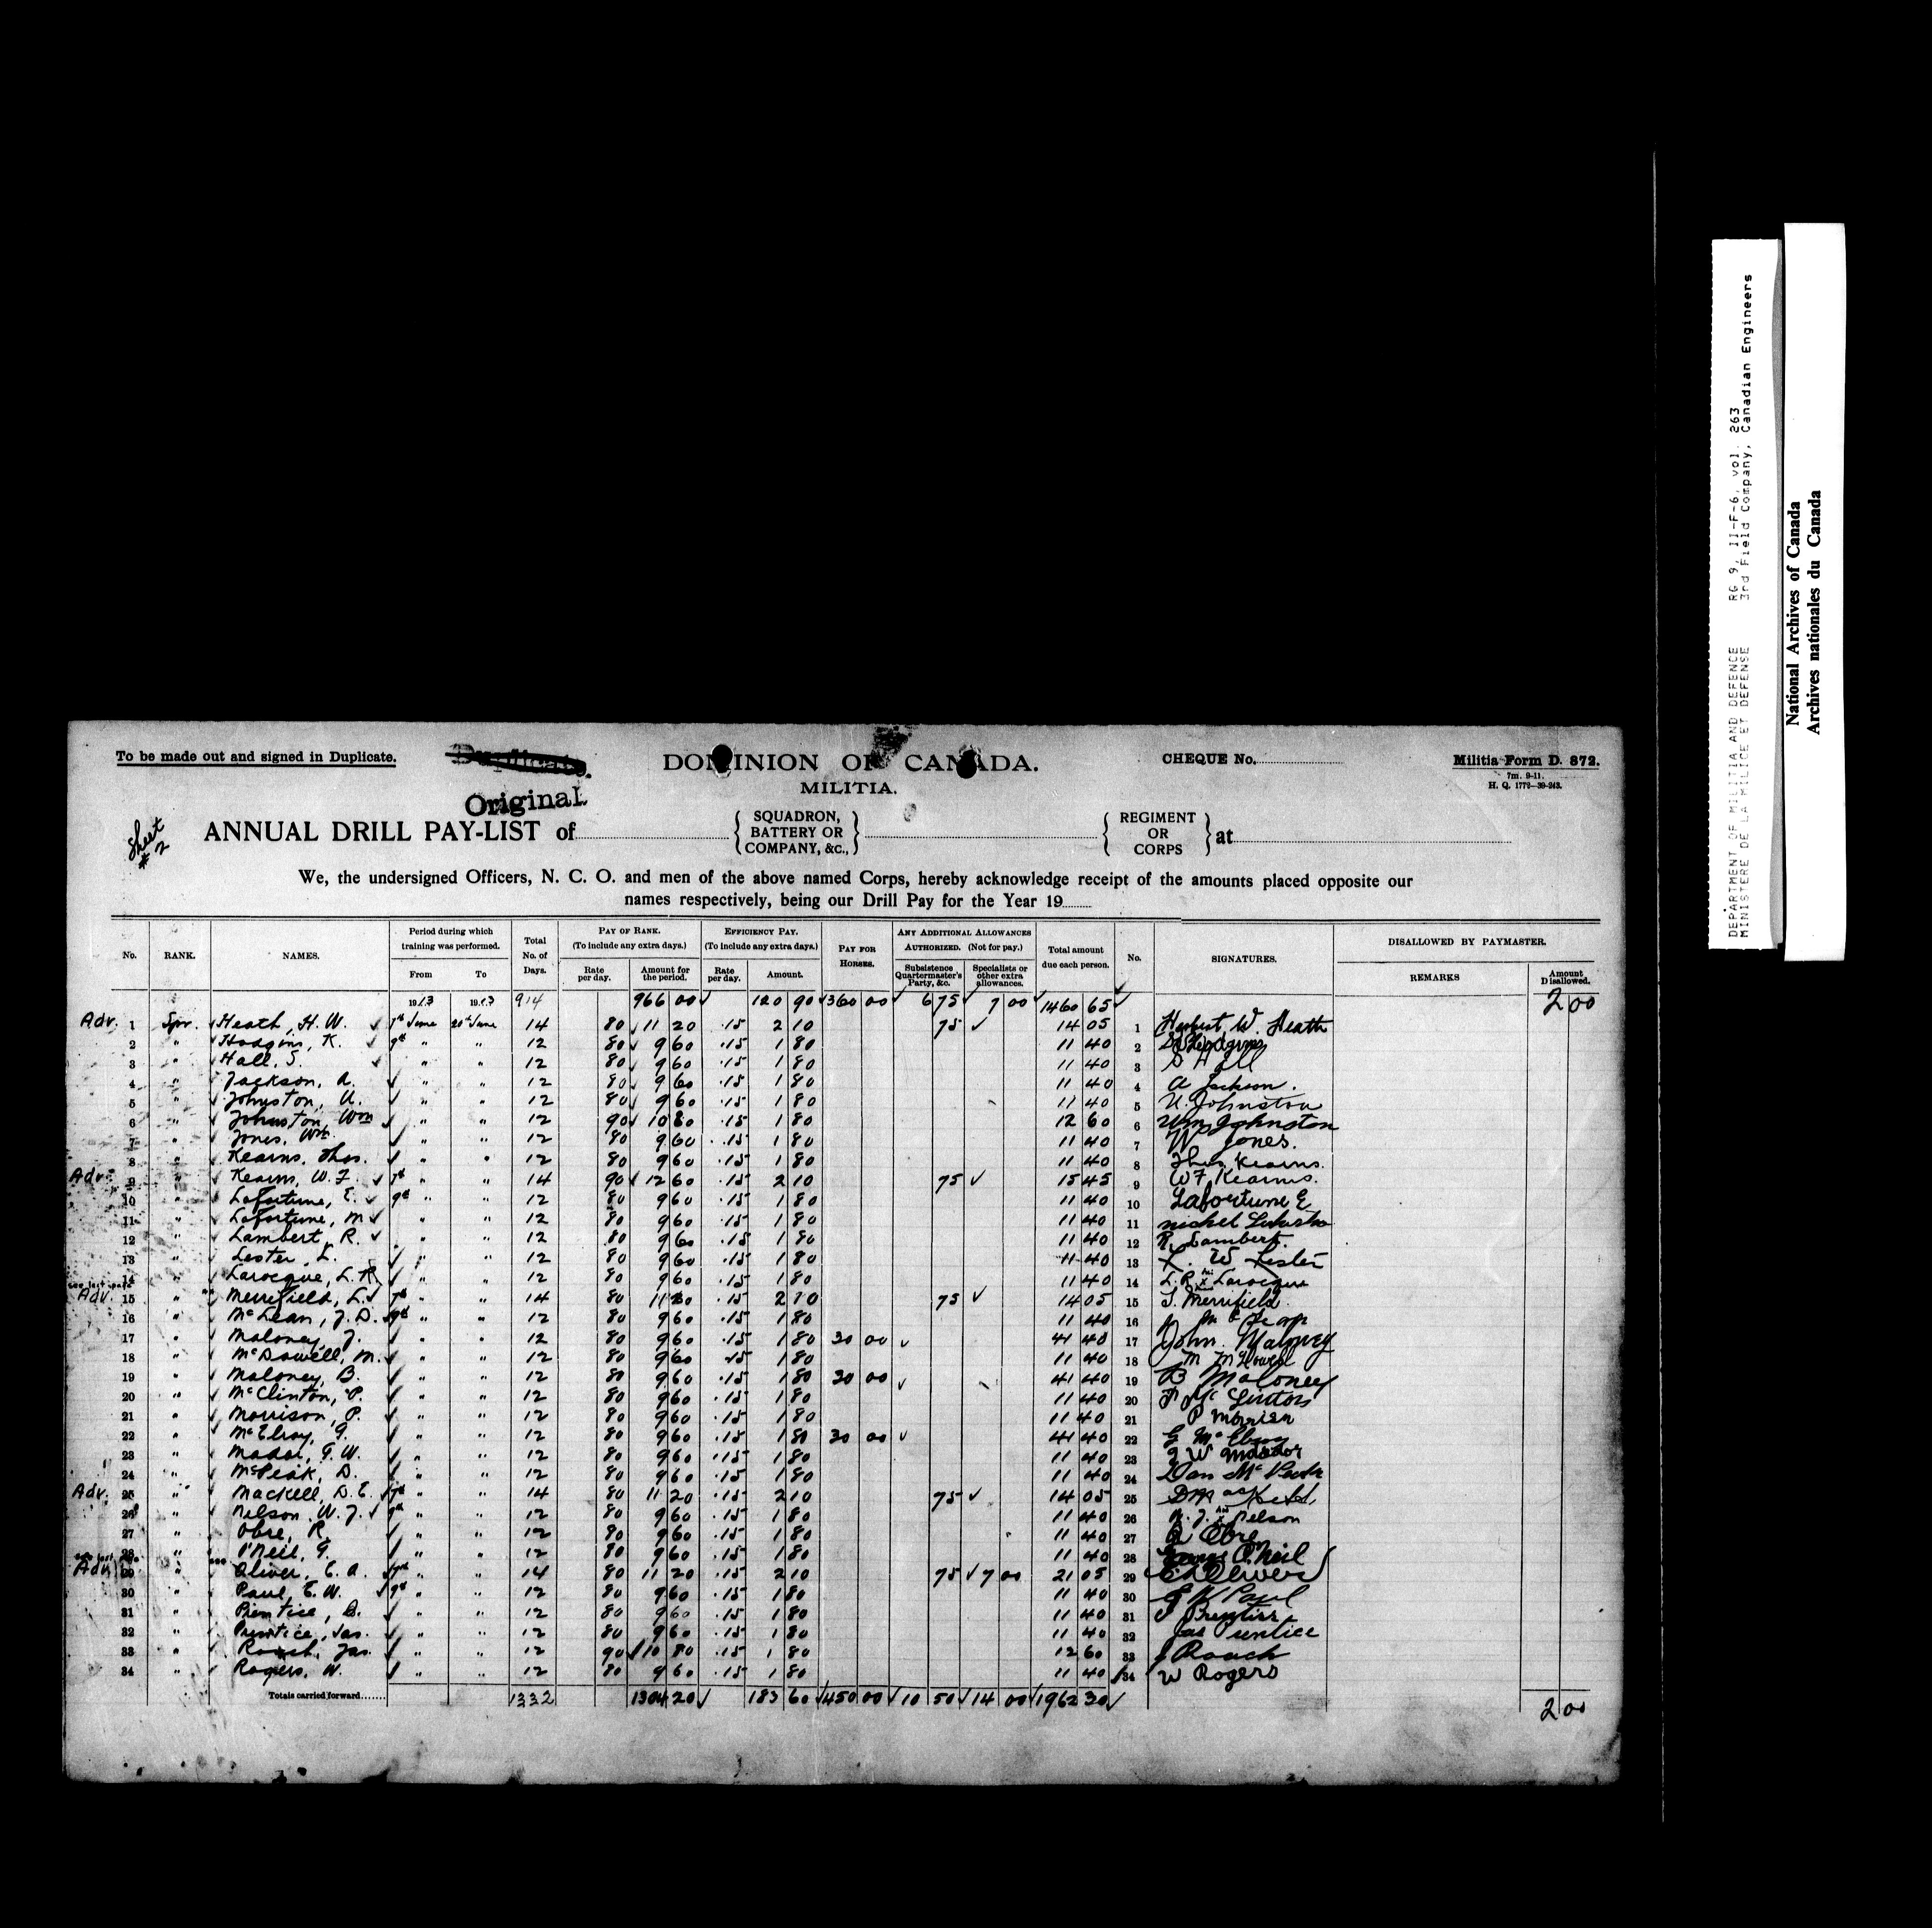 To be made out and signed in Duplicate.
Duplicate.
Original
DOMINION OF CANADA.
MILITIA.
CHEQUE No.
Militia Form D. 872.
7m. 9-11.
H. Q. 1772-39-243.
Sheet # 2
ANNUAL DRILL PAY-LIST of { SQUADRON, BATTERY OR COMPANY, &c., } { REGIMENT OR CORPS } at
We, the undersigned Officers, N. C. O. and men of the above named Corps, hereby acknowledge receipt of the amounts placed opposite our
names respectively, being our Drill Pay for the Year 19
No. RANK. NAMES. Period during which training was performed. From To Total No. of Days. PAY OF RANK. (To include any extra days.) Rate per day. Amount for the period. EFFICIENCY PAY. (To include any extra days.) Rate per day. Amount. PAY FOR HORSES. ANY ADDITIONAL ALLOWANCES AUTHORIZED. (Not for pay.) Subsistence Quartermaster's Party, &c. Specialists or other extra allowances. Total amount due each person. No. SIGNATURES. DISALLOWED BY PAYMASTER. REMARKS Amount Disallowed.
1913 1913 914 966 00 120 90 360 00 6 75 7 00 1460 65 2 00
Adv. 1 Spr. Heath, H. W. 7th June 20th June 14 80 11 20 .15 2 10 75 14 05 1 Herbert W. Heath
2 " Hodgins, K. 9th " " 12 80 9 60 .15 1 80 11 40 2
3 " Hall, S. " " 12 80 9 60 .15 1 80 11 40 3 S Hall
4 " Jackson, A. " " 12 80 9 60 .15 1 80 11 40 4 A Jackson.
5 " Johnston, U. " " 12 80 9 60 .15 1 80 11 40 5 U. Johnston
6 " Johnston, Wm " " 12 90 10 80 .15 1 80 12 60 6 Wm Johnston
7 " Jones, Wm. " " 12 80 9 60 .15 1 80 11 40 7 W Jones.
8 " Kearns, Thos. " " 12 80 9 60 .15 1 80 11 40 8 Thos Kearns.
Adv. 9 " Kearns, W. F. 7th " " 14 90 12 60 .15 2 10 75 15 45 9 W F Kearns.
10 " Lafortune, E. 9th " " 12 80 9 60 .15 1 80 11 40 10 Lafortune E
11 " Lafortune, M " " 12 80 9 60 .15 1 80 11 40 11
12 " Lambert, R. " " 12 80 9 60 .15 1 80 11 40 12 R. Lambert.
13 " Lester, L. " " 12 80 9 60 .15 1 80 11 40 13 L. W Lester
14 " Larocque, L. R. " " 12 80 9 60 .15 1 80 11 40 14 L. R. x Larocque
see last page
Adv. 15 " Merrifield, L. 7th " " 14 80 11 20 .15 2 10 75 14 05 15 Merrifield.
16 " McLean, J. D. 9th " " 12 80 9 60 .15 1 80 11 40 16
17 " Maloney, J. " " 12 80 9 60 .15 1 80 30 00 41 40 17 John. Maloney
18 " McDowell, M. " " 12 80 9 60 .15 1 80 11 40 18
19 " Maloney, B. " " 12 80 9 60 .15 1 80 30 00 41 40 19 B Maloney
20 " McClinton, P. " " 12 80 9 60 .15 1 80 11 40 20
21 " Morrison, P. " " 12 80 9 60 .15 1 80 11 40 21 P
22 " McElroy, G. " " 12 80 9 60 .15 1 80 30 00 41 40 22 G McElroy
23 " Mador, G. W. " " 12 80 9 60 .15 1 80 11 40 23 G W Mador
24 " McPeak, D. " " 12 80 9 60 .15 1 80 11 40 24 Dan McPeak
Adv. 25 " Mackell, D. E. 7th " " 14 80 11 20 .15 2 10 75 14 05 25
26 " Nelson, W. J. 9th " " 12 80 9 60 .15 1 80 11 40 26 W. J. x Nelson
27 " Obre, R. " " 12 80 9 60 .15 1 80 11 40 27 R Obre
28 " O'Neil, G. " " 12 80 9 60 .15 1 80 11 40 28 George O'Neil
Adv. 29 " Oliver, E. A. 7th " " 14 80 11 20 .15 2 10 75 7 00 21 05 29 E A Oliver
30 " Paul, E. W. 9th " " 12 80 9 60 .15 1 80 11 40 30 E W Paul
31 " Prentice, B. " " 12 80 9 60 .15 1 80 11 40 31
32 " Prentice, Jas. " " 12 80 9 60 .15 1 80 11 40 32 Jas Prentice
33 " Roach, Jas " " 12 90 10 80 .15 1 80 12 60 33 J Roach
34 " Rogers, W. " " 12 80 9 60 .15 1 80 11 40 34 W Rogers
Totals carried forward...... 1332 1304 20 183 60 450 00 10 50 14 00 1962 30 2 00
DEPARTMENT OF MILITIA AND DEFENCE RG 9, II-F-6, vol. 263
MINISTERE DE LA MILICE ET DEFENSE 3rd Field Company, Canadian Engineers
National Archives of Canada
Archives nationales du Canada